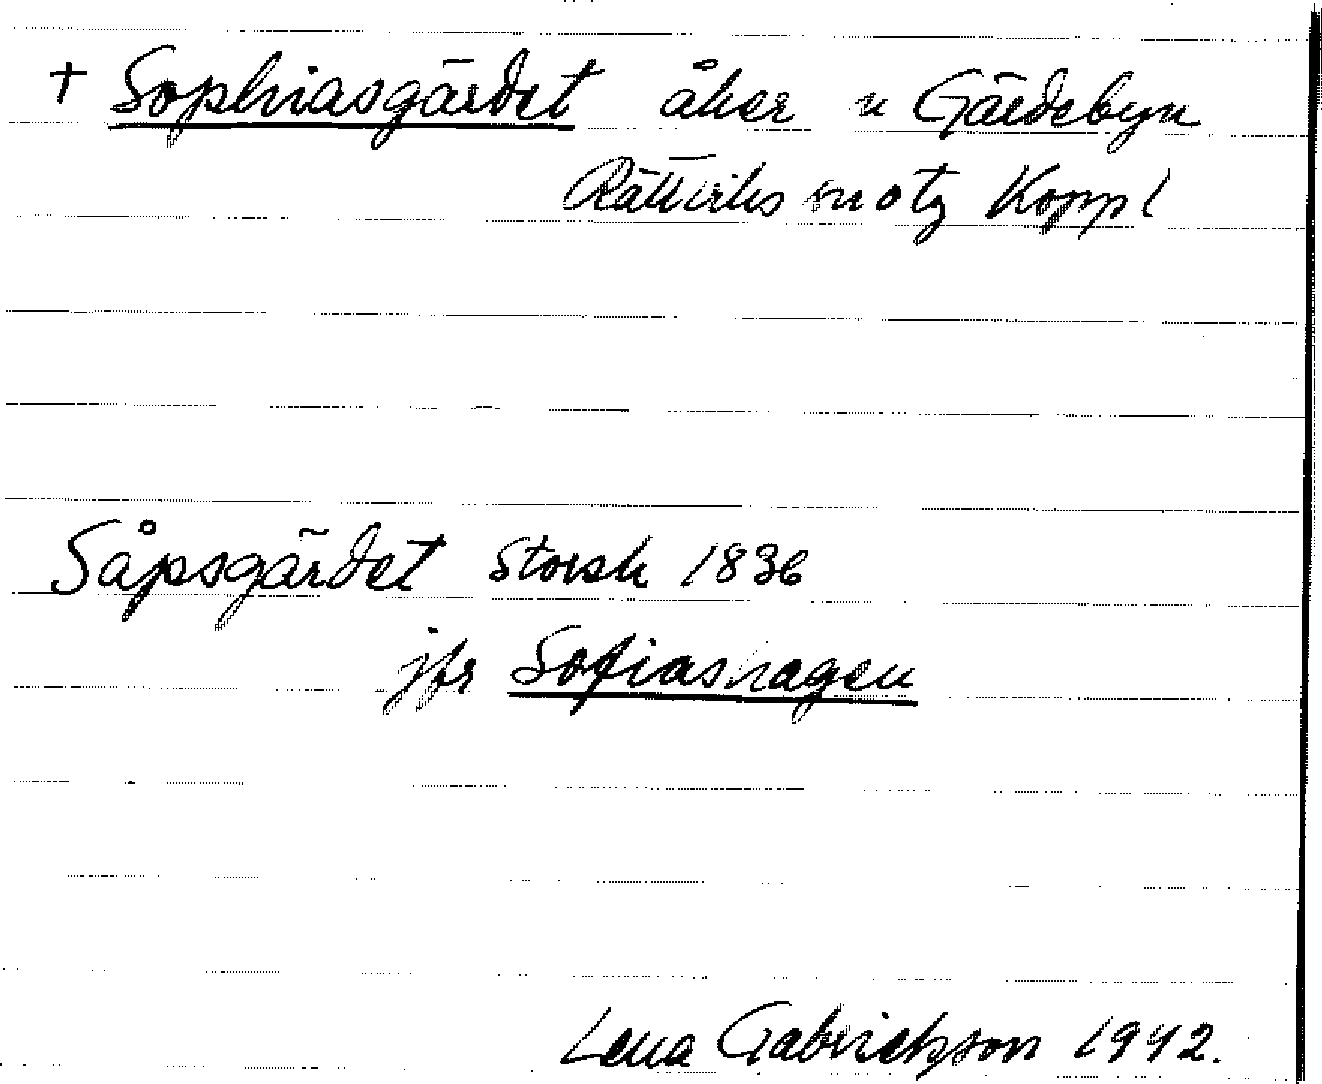 + Sophiasgärdet åker u Gärdebyn
Rättviks sn otg Koppl
Såpsgärdet Storsk 1836
jfr Sofiashagen
Lena Gabrielsson 1942.